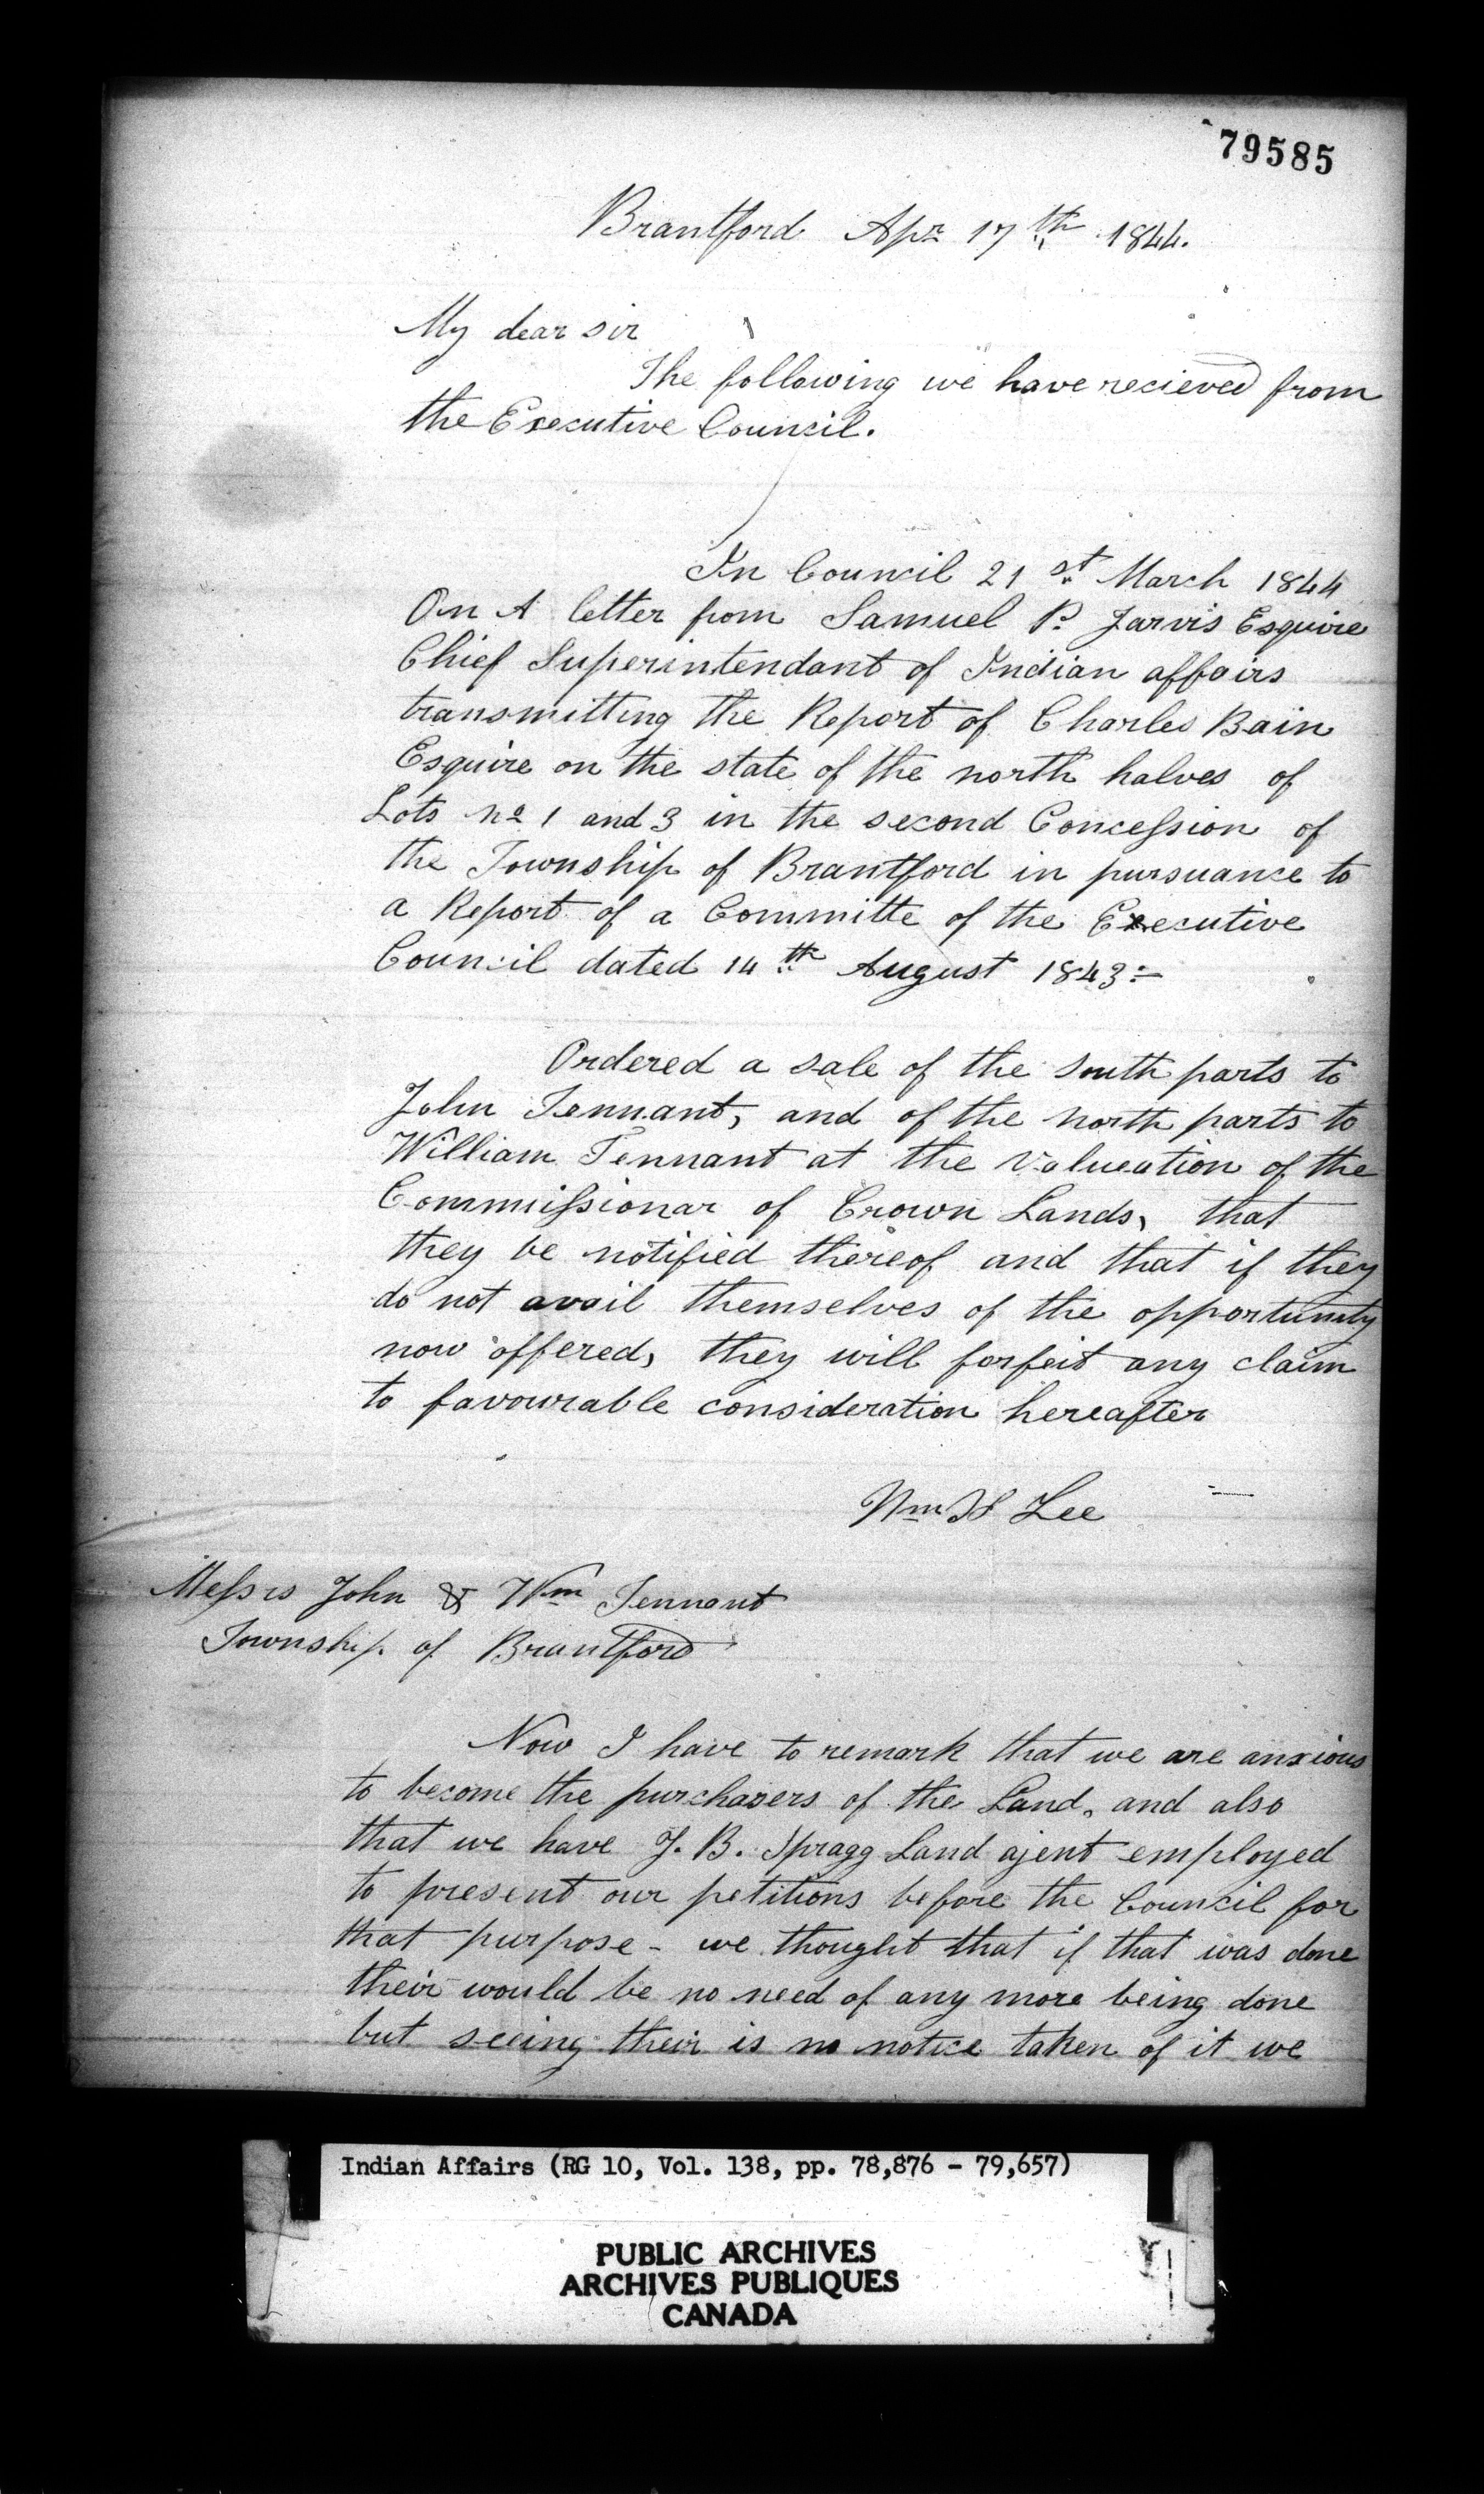 79585
Brantford Apr 17th 1844.
My dear sir
The following we have recieved from
the Executive Council.
In Council 21st March 1844
On A letter from Samuel P. Jarvis Esquire
Chief Superintendant of Indian affairs
transmitting the Report of Charles Bain
Esquire on the state of the north halves of
Lots No 1 and 3 in the second Concession of
the Township of Brantford in pursuance to
a Report of a Committe of the Executive
Council dated 14th August 1843:-
Ordered a sale of the South parts to
John Tennant, and of the north parts to
William Tennant at the Valueation of the
Commissionar of Crown Lands, that
they be notified thereof and that if they
do not avail themselves of the opportunity
now offered, they will forfeit any claim
to favourable consideration hereafter
Wm H Lee
Messrs John & Wm Tennant
Township of Brantford
Now I have to remark that we are anxious
to become the purchasers of the Land, and also
that we have J. B. Spragg Land agent employed
to present our petitions before the Council for
that purpose - we thought that if that was done
their would be no need of any more being done
but seeing their is no notice taken of it we
Indian Affairs (RG 10, Vol. 138, pp. 78,876 - 79,657)
PUBLIC ARCHIVES
ARCHIVES PUBLIQUES
CANADA